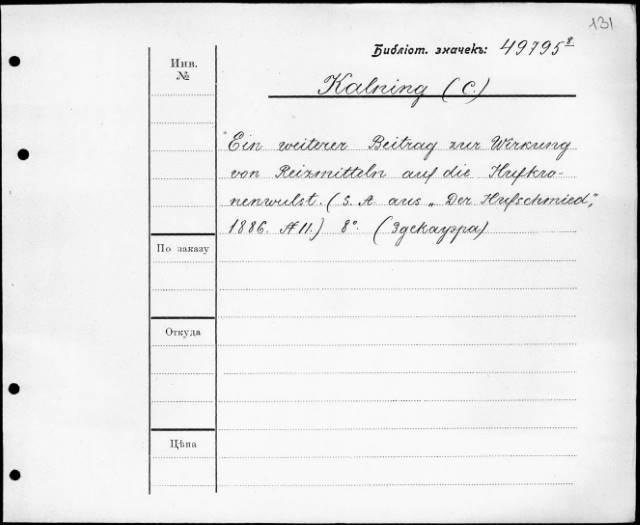 131
Библіот. значекъ: 49795 8
Инв.
№
Kalning (C.)
"Ein weiterer Beitrag zur Wirkung
von Reizmitteln auf die Hufkro-
nenwulst. (S. A. aus „Der Hufschmied",
1886. № 11.) 8°. (Эдекауэра)
По заказу
Откуда
Цѣна